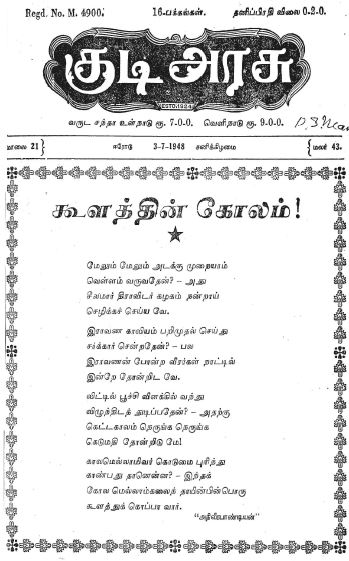 Regd. No. M. 4900. 16-பக்கங்கள். தனிப்பிரதி விலை 0-2-0.
குடி அரசு
ESTD.1924
வருட சந்தா உள்நாடு ரூ. 7-0-0. வெளிநாடு ரூ. 9-0-0.
மாலை 21 ஈரோடு 3-7-1948 சனிக்கிழமை மலர் 43.
கூளத்தின் கோலம்!
மேலும் மேலும் அடக்கு முறையாம்
வெள்ளம் வருவதேன்? – அது
சீலமார் திராவிடர் கழகம் நன்றாய்
செழிக்கச் செய்ய வே.
இராவண காவியம் பறிமுதல் செய்து
சர்க்கார் சென்றதேன்? – பல
இராவணன் போன்ற வீரர்கள் நாட்டில்
இன்றே தோன்றிட வே.
விட்டில் பூச்சி விளக்கில் வந்து
விழுந்திடத் துடிப்பதேன்? – அதற்கு
கெட்டகாலம் நெருங்க நெருங்க
கெடுமதி தோன்றிடு மே!
காலமெல்லாமிவர் கொடுமை புரிந்து
காண்பது தானென்ன? – இந்தக்
கோல மெல்லாங்கலைத் தாயின்பின்பொரு
கூளத்துக் கொப்பா வார்.
"அறிவொண்டியன்"